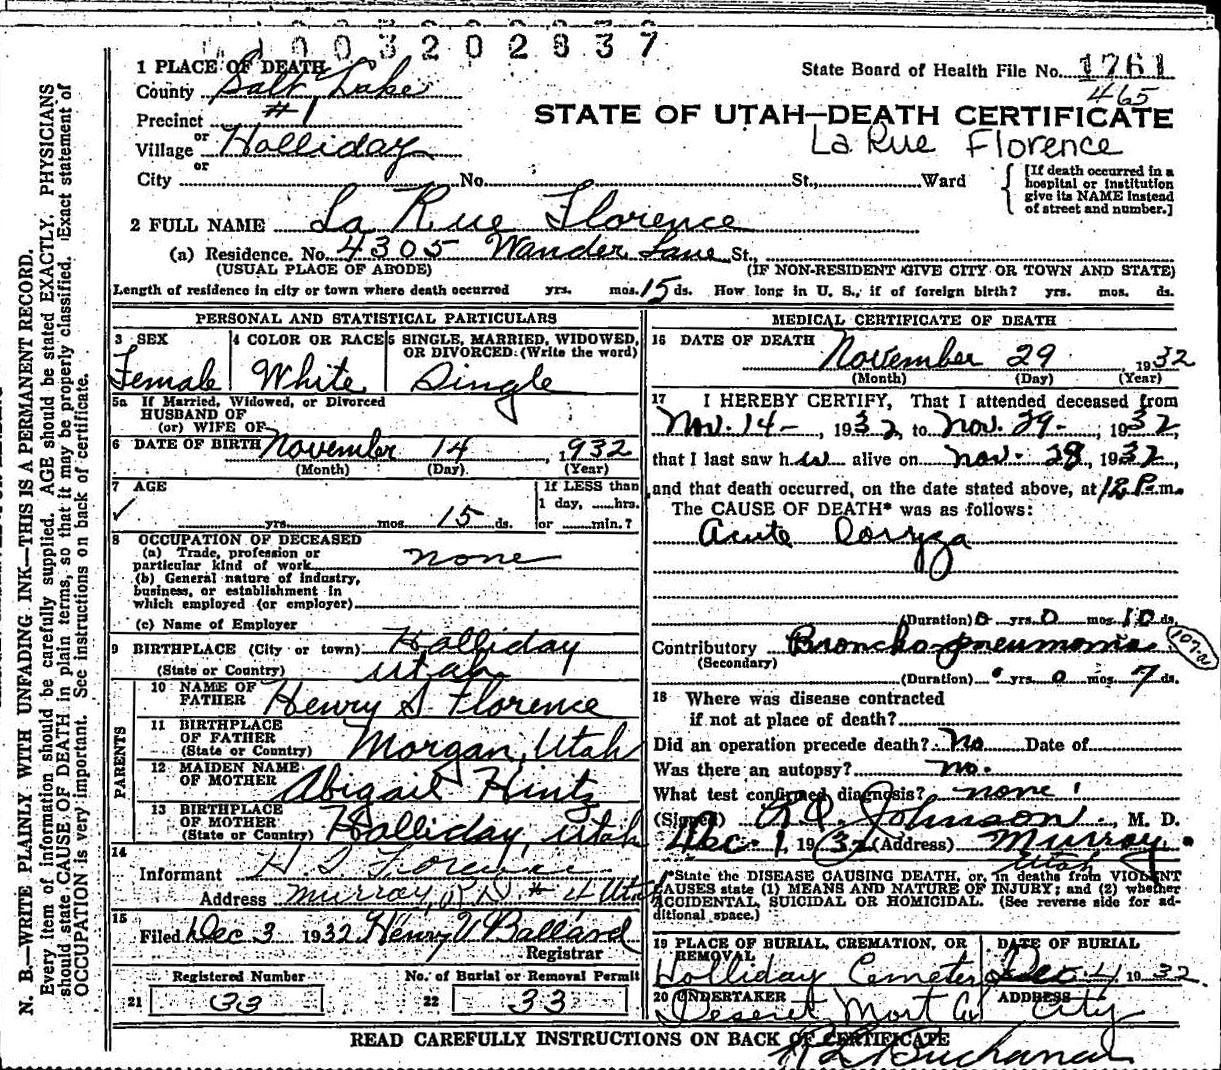 1003202837
1 PLACE OF DEATH
State Board of Health File No. 1761
County Salt Lake
465
Precinct #1
STATE OF UTAH—DEATH CERTIFICATE
or
Village Holliday
La Rue Florence
or
City No. St., Ward
[If death occurred in a hospital or institution give its NAME instead of street and number.]
2 FULL NAME La Rue Florence
(a) Residence. No. 4305 Wander Lane St.,
(USUAL PLACE OF ABODE) (IF NON-RESIDENT GIVE CITY OR TOWN AND STATE)
Length of residence in city or town where death occurred yrs. mos. 15 ds. How long in U. S., if of foreign birth? yrs. mos. ds.
PERSONAL AND STATISTICAL PARTICULARS
3 SEX Female
4 COLOR OR RACE White
5 SINGLE, MARRIED, WIDOWED, OR DIVORCED: (Write the word) Single
5a If Married, Widowed, or Divorced
HUSBAND OF
(or) WIFE OF
6 DATE OF BIRTH November 14, 1932
(Month) (Day) (Year)
7 AGE
If LESS than
1 day, hrs.
yrs. mos. 15 ds. or min.?
8 OCCUPATION OF DECEASED
(a) Trade, profession or
particular kind of work none
(b) General nature of industry,
business, or establishment in
which employed (or employer)
(c) Name of Employer
9 BIRTHPLACE (City or town) Halliday
(State or Country) Utah
PARENTS
10 NAME OF FATHER Henry S Florence
11 BIRTHPLACE OF FATHER (State or Country) Morgan, Utah
12 MAIDEN NAME OF MOTHER Abigail Hintz
13 BIRTHPLACE OF MOTHER (State or Country) Halliday, Utah
14
Informant H. S. Florence
Address Murray, R.D. # 4 Utah
15
Filed Dec 3 1932 Henry V Ballard
Registrar
Registered Number No. of Burial or Removal Permit
21 33 22 33
MEDICAL CERTIFICATE OF DEATH
16 DATE OF DEATH
November 29 1932
(Month) (Day) (Year)
17 I HEREBY CERTIFY, That I attended deceased from
Nov. 14-, 1932, to Nov. 29-, 1932,
that I last saw her alive on Nov. 28, 1932,
and that death occurred, on the date stated above, at 12 P.m.
The CAUSE OF DEATH* was as follows:
Acute Coryza
(Duration) 0 yrs. 0 mos. 10 ds.
Contributory Broncho pneumonia 107a
(Secondary)
(Duration) 0 yrs. 0 mos. 7 ds.
18 Where was disease contracted
if not at place of death?
Did an operation precede death? No Date of
Was there an autopsy? no.
What test confirmed diagnosis? none
(Signed) Johnson, M. D.
Dec. 1, 1932 (Address) Murray,
Utah
*State the DISEASE CAUSING DEATH, or, in deaths from VIOLENT
CAUSES state (1) MEANS AND NATURE OF INJURY; and (2) whether
ACCIDENTAL, SUICIDAL OR HOMICIDAL. (See reverse side for additional space.)
19 PLACE OF BURIAL, CREMATION, OR REMOVAL DATE OF BURIAL
Holliday Cemetery Dec. 4 1932
20 UNDERTAKER ADDRESS
Deseret Mort Co City
READ CAREFULLY INSTRUCTIONS ON BACK OF CERTIFICATE
Buchanan
N. B.—WRITE PLAINLY WITH UNFADING INK—THIS IS A PERMANENT RECORD.
Every item of information should be carefully supplied. AGE should be stated EXACTLY. PHYSICIANS
should state CAUSE OF DEATH in plain terms, so that it may be properly classified. Exact statement of
OCCUPATION is very important. See instructions on back of certificate.